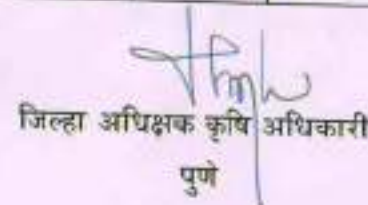 जिल्हा अधिक्षक कृषि अधिकारी
पुणे